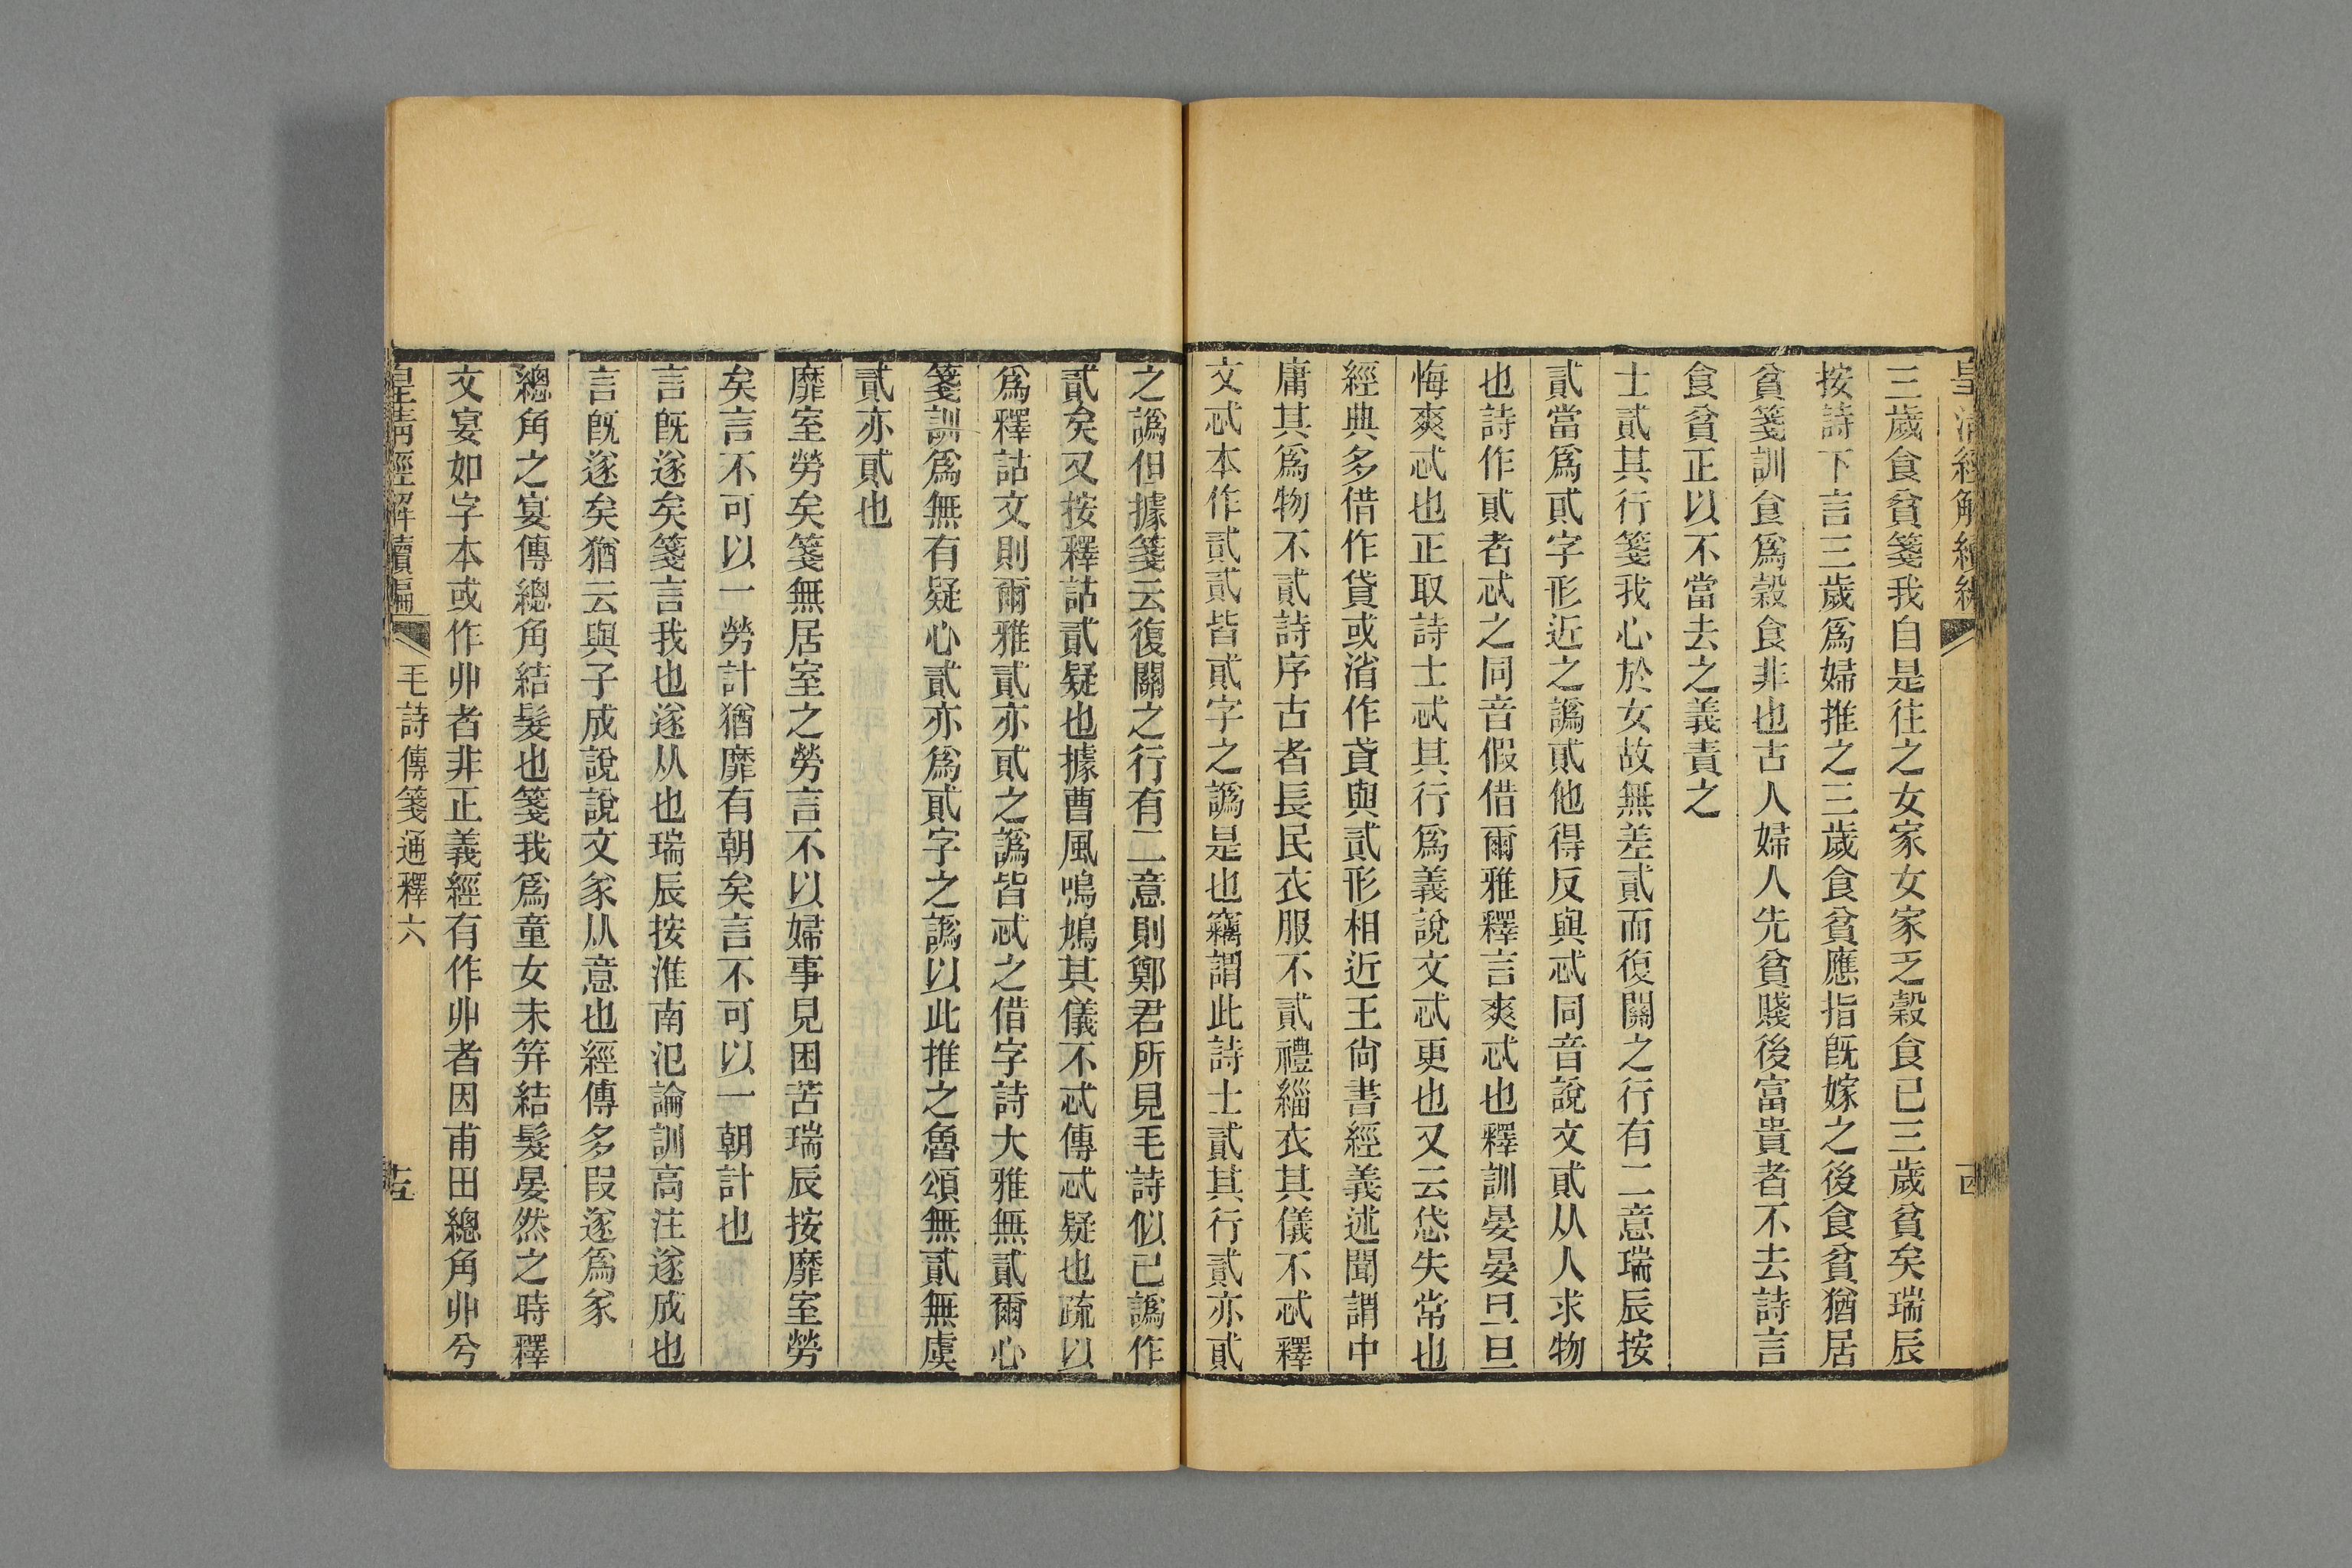 皇清經解續編
三歲食貧箋我自是往之女家女家乏穀食已三歲貧矣瑞辰
按詩下言三歲爲婦推之三歲食貧應指旣嫁之後食貧猶居
貧箋訓食爲穀食非也古人婦人先貧賤後富貴者不去詩言
食貧正以不當去之義責之
士貳其行箋我心於女故無差貳而復關之行有二意瑞辰按
貳當爲貣字形近之譌貣他得反與忒同音說文貣从人求物
也詩作貣者忒之同音假借爾雅釋言爽忒也釋訓晏晏旦旦
悔爽忒也正取詩士忒其行爲義說文忒更也又云㤅失常也
經典多借作貸或渻作貣與貳形相近王尙書經義述聞謂中
庸其爲物不貳詩序古者長民衣服不貳禮緇衣其儀不忒釋
文忒本作貳貳皆貣字之譌是也竊謂此詩士貳其行貳亦貣
之譌但據箋云復關之行有二意則鄭君所見毛詩似已譌作
貳矣又按釋詁貳疑也據曹風鳲鳩其儀不忒傳忒疑也疏以
爲釋詁文則爾雅貳亦貣之譌皆忒之借字詩大雅無貳爾心
箋訓爲無有疑心貳亦爲貣字之譌以此推之魯頌無貳無虞
貳亦貣也
靡室勞矣箋無居室之勞言不以婦事見困苦瑞辰按靡室勞
矣言不可以一勞計猶靡有朝矣言不可以一朝計也
言旣遂矣箋言我也遂从也瑞辰按淮南氾論訓高注遂成也
言旣遂矣猶云與子成說說文㒸从意也經傳多叚遂爲㒸
總角之宴傳總角結髮也箋我爲童女未笄結髮晏然之時釋
文宴如字本或作丱者非正義經有作丱者因甫田總角丱兮
皇淸經解續編
毛詩傳箋通釋六